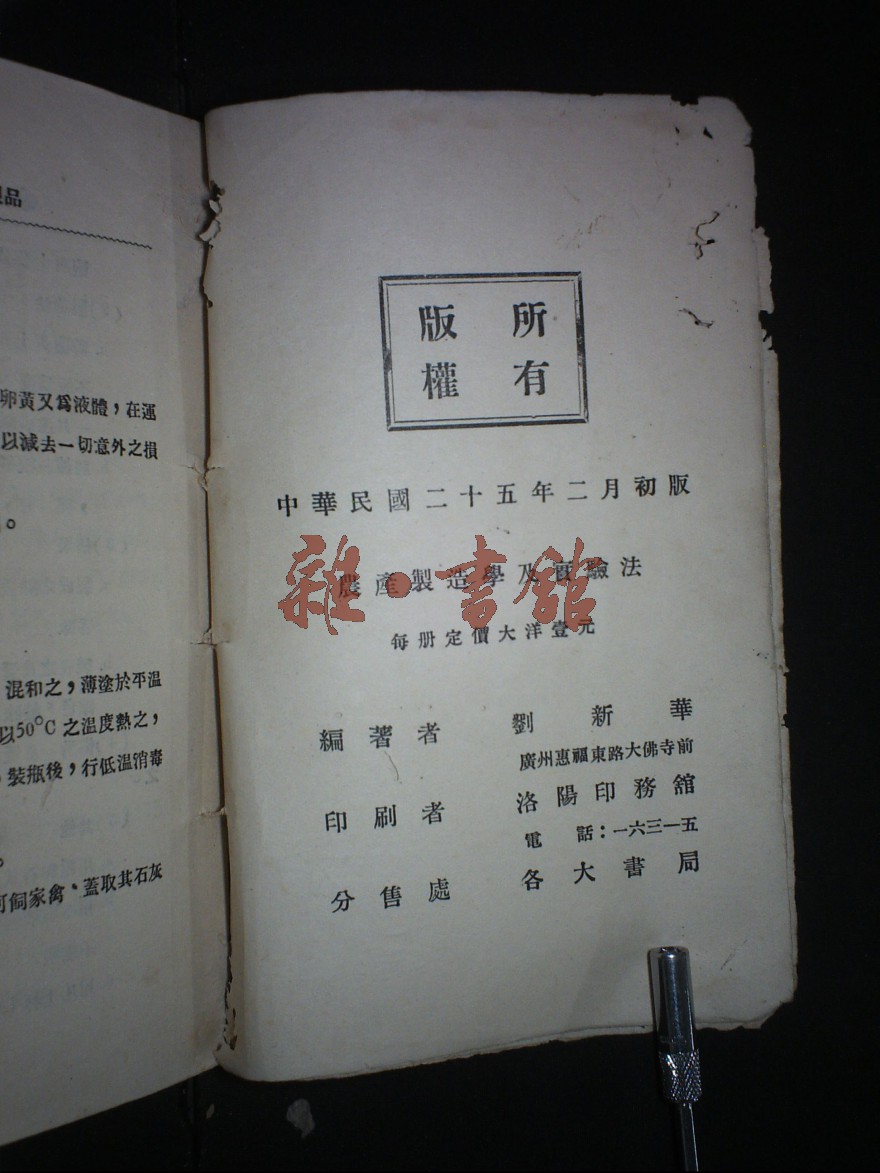 品
卵黃又爲液體，在運
以減去一切意外之損
。
混和之，薄塗於平温
以50°C之温度熱之，
裝瓶後，行低温消毒
。
可飼家禽、蓋取其石灰
版 所
權 有
中華民國二十五年二月初版
農產製造學及實驗法
每册定價大洋壹元
雜·書舘
編著者 劉新華
廣州惠福東路大佛寺前
印刷者 洛陽印務舘
電話：一六三一五
分售處 各大書局